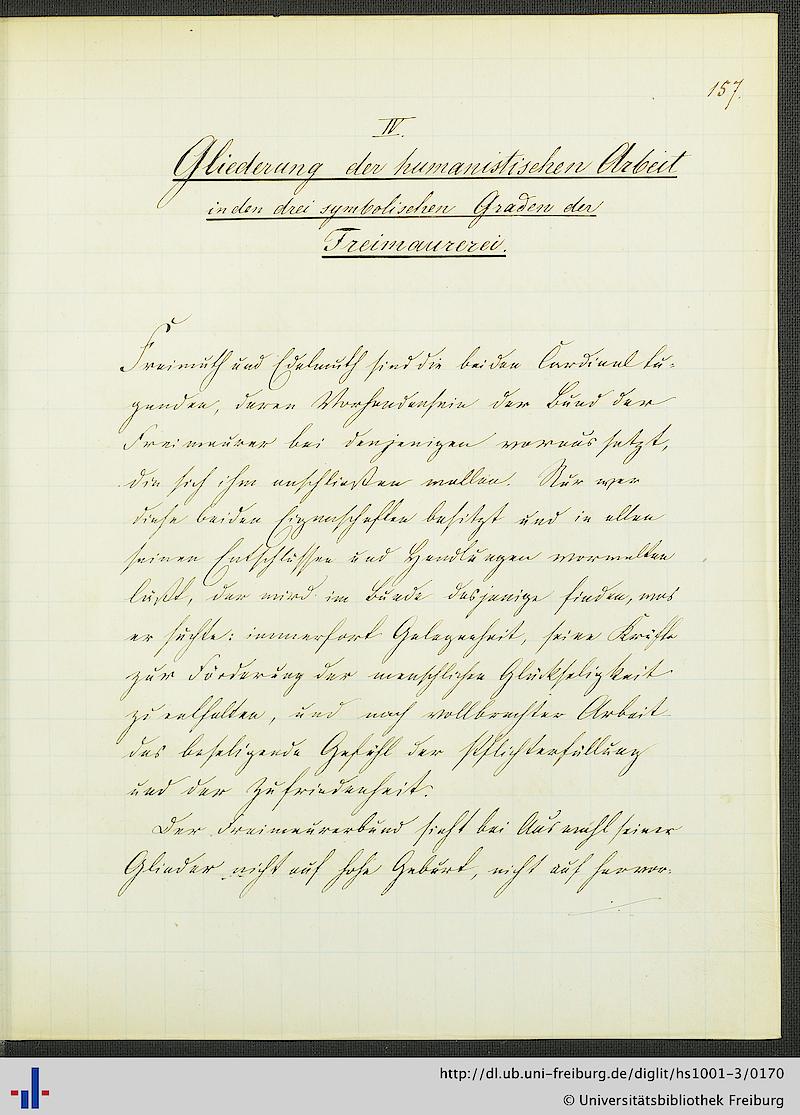 157.
IV.
Gliederung der humanistischen Arbeit
in den drei symbolischen Graden der
Freimaurerei.
Freimuth und Edelmuth sind die beiden Cardinaltu-
genden, deren Vorhandensein der Bund der
Freimaurer bei denjenigen voraussetzt,
die sich ihm anschließen wollen. Nur wer
diese beiden Eigenschaften besitzt und in allen
seinen Entschlüssen und Handlungen vorwalten
läßt, der wird im Bunde dasjenige finden, was
er suchte: immerfort Gelegenheit, seine Kräfte
zur Förderung der menschlichen Glückseligkeit
zu entfalten, und nach vollbrachter Arbeit
das beseligende Gefühl der Pflichterfüllung
und der Zufriedenheit.
Der Freimaurerbund sieht bei Auswahl seiner
Glieder nicht auf hohe Geburt, nicht auf hervor-
http://dl.ub.uni-freiburg.de/diglit/hs1001-3/0170
© Universitätsbibliothek Freiburg